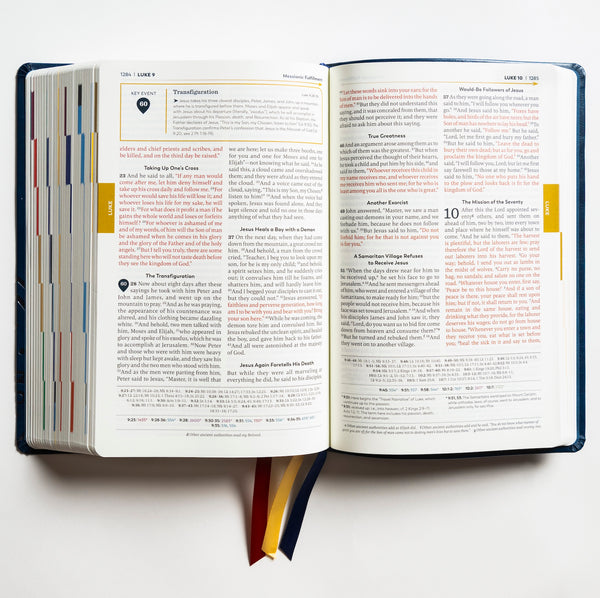 1284 | LUKE 9
Messianic Fulfillment
KEY EVENT
60
Transfiguration
Jesus takes his three closest disciples, Peter, James, and John, up a mountain,
where he is transfigured before them. Moses and Elijah appear and speak
elders and chief priests and scribes, and
be killed, and on the third day be raised."
Taking Up One's Cross
23 And he said to all, "If any man would
come after me, let him deny himself and
take up his cross daily and follow me. 24For
whoever would save his life will lose it; and
whoever loses his life for my sake, he will
save it. 25For what does it profit a man if he
gains the whole world and loses or forfeits
himself? 26For whoever is ashamed of me
and of my words, of him will the Son of man
be ashamed when he comes in his glory
and the glory of the Father and of the holy
angels. 27But I tell you truly, there are some
standing here who will not taste death before
they see the kingdom of God."
The Transfiguration
60
28 Now about eight days after these
sayings he took with him Peter and
John and James, and went up on the
mountain to pray. 29And as he was praying,
the appearance of his countenance was
altered, and his clothing became dazzling
white. 30And behold, two men talked with
him, Moses and Elijah, 31who appeared in
glory and spoke of his exodus, which he was
to accomplish at Jerusalem. 32Now Peter
and those who were with him were heavy
with sleep but kept awake, and they saw his
glory and the two men who stood with him.
33And as the men were parting from him,
Peter said to Jesus, "Master, it is well that
we are here; let us make three booths, one
for you and one for Moses and one for
Elijah"—not knowing what he said. 34As he
said this, a cloud came and overshadowed
them; and they were afraid as they entered
the cloud. 35And a voice came out of the
cloud, saying, "This is my Son, my Chosen;
listen to him!" 36And when the voice had
spoken, Jesus was found alone. And they
kept silence and told no one in those days
anything of what they had seen.
Jesus Heals a Boy with a Demon
37 On the next day, when they had come
down from the mountain, a great crowd met
him. 38And behold, a man from the crowd
cried, "Teacher, I beg you to look upon my
son, for he is my only child; 39and behold,
a spirit seizes him, and he suddenly cries
out; it convulses him till he foams, and
shatters him, and will hardly leave him.
40And I begged your disciples to cast it out,
but they could not." 41Jesus answered, "O
faithless and perverse generation, how long
am I to be with you and bear with you? Bring
your son here." 42While he was coming, the
demon tore him and convulsed him. But
Jesus rebuked the unclean spirit, and healed
the boy, and gave him back to his father.
43And all were astonished at the majesty
of God.
Jesus Again Foretells His Death
But while they were all marveling at
everything he did, he said to his disciples,
LUKE
LUKE 10 | 1285
44"Let these words sink into your ears; for the
Son of man is to be delivered into the hands
of men." 45But they did not understand this
saying, and it was concealed from them, that
they should not perceive it; and they were
afraid to ask him about this saying.
True Greatness
46 And an argument arose among them as to
which of them was the greatest. 47But when
Jesus perceived the thought of their hearts,
he took a child and put him by his side, 48and
said to them, "Whoever receives this child in
my name receives me, and whoever receives
me receives him who sent me; for he who is
least among you all is the one who is great."
Another Exorcist
49 John answered, "Master, we saw a man
casting out demons in your name, and we
forbade him, because he does not follow
with us." 50But Jesus said to him, "Do not
forbid him; for he that is not against you
is for you."
A Samaritan Village Refuses
to Receive Jesus
51 When the days drew near for him to
be received up, he set his face to go to
Jerusalem. 52And he sent messengers ahead
of him, who went and entered a village of the
Samaritans, to make ready for him; 53but the
people would not receive him, because his
face was set toward Jerusalem. 54And when
his disciples James and John saw it, they
said, "Lord, do you want us to bid fire come
down from heaven and consume them?"
55But he turned and rebuked them. 56And
they went on to another village.
Would-Be Followers of Jesus
57 As they were going along the road, a man
said to him, "I will follow you wherever you
go." 58And Jesus said to him, "Foxes have
holes, and birds of the air have nests; but the
Son of man has nowhere to lay his head." 59To
another he said, "Follow me." But he said,
"Lord, let me first go and bury my father."
60But he said to him, "Leave the dead to
bury their own dead; but as for you, go and
proclaim the kingdom of God." 61Another
said, "I will follow you, Lord; but let me first
say farewell to those at my home." 62Jesus
said to him, "No one who puts his hand to
the plow and looks back is fit for the
kingdom of God."
The Mission of the Seventy
10 After this the Lord appointed sev-
enty others, and sent them on
ahead of him, two by two, into every town
and place where he himself was about to
come. 2And he said to them, "The harvest
is plentiful, but the laborers are few; pray
therefore the Lord of the harvest to send
out laborers into his harvest. 3Go your
way; behold, I send you out as lambs in
the midst of wolves. 4Carry no purse, no
bag, no sandals; and salute no one on the
road. 5Whatever house you enter, first say,
'Peace be to this house!' 6And if a son of
peace is there, your peace shall rest upon
him; but if not, it shall return to you. 7And
remain in the same house, eating and
drinking what they provide, for the laborer
deserves his wages; do not go from house
to house. 8Whenever you enter a town and
they receive you, eat what is set before
you; 9heal the sick in it and say to them,
LUKE